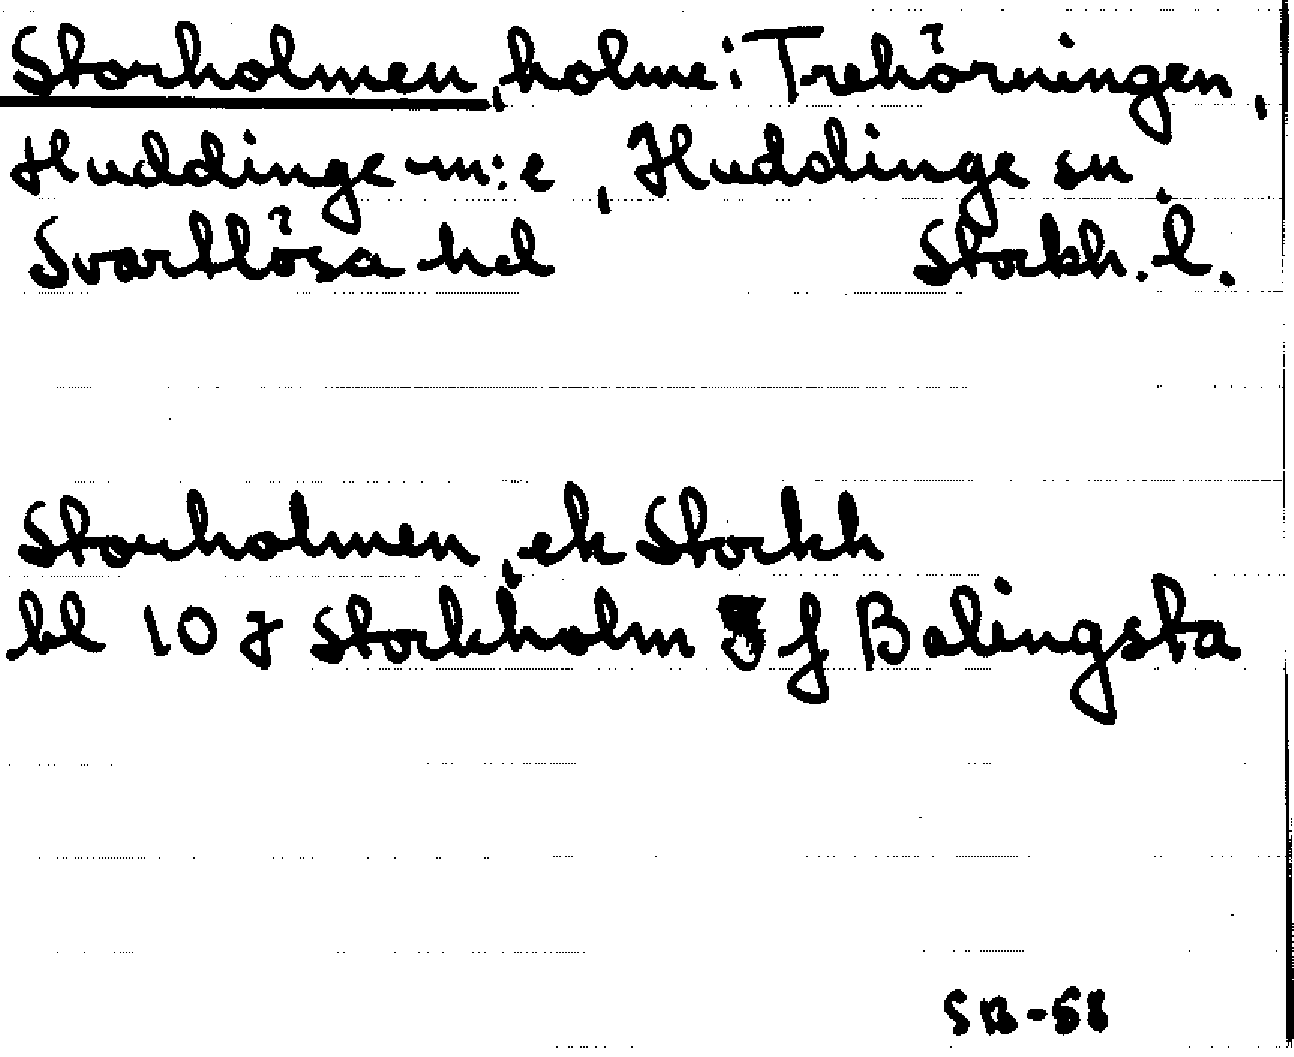 Storholmen, holme i Trehörningen,
Huddinge m:e, Huddinge sn.
Svartlösa hd Stockh. l.
Storholmen, ek Stockh
bl 10 J Stockholm f Balingsta
SB-58